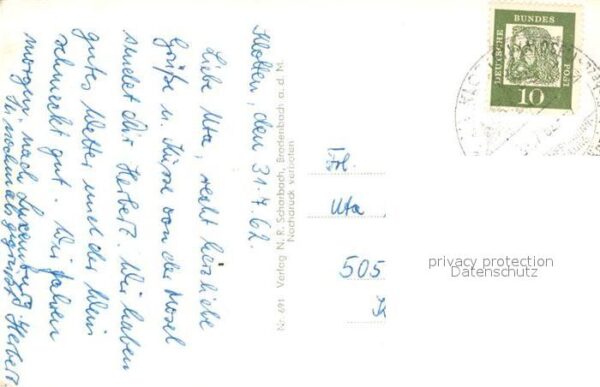 Klotten, den 31.7.62.
Liebe Uta, recht herzliche
Grüße u. Küsse von der Mosel
sendet Dir Herbert. Wir haben
gutes Wetter und der Wein
schmeckt gut. Wir fahren
morgen nach Luxemburg.
Sei nochmals gegrüßt Herbert
Nr. 691 Verlag N. R. Scharbach, Brodenbach a. d. M.
Nachdruck verboten
DEUTSCHE
BUNDES
POST
10
Frl.
Uta
505
privacy protection
Datenschutz